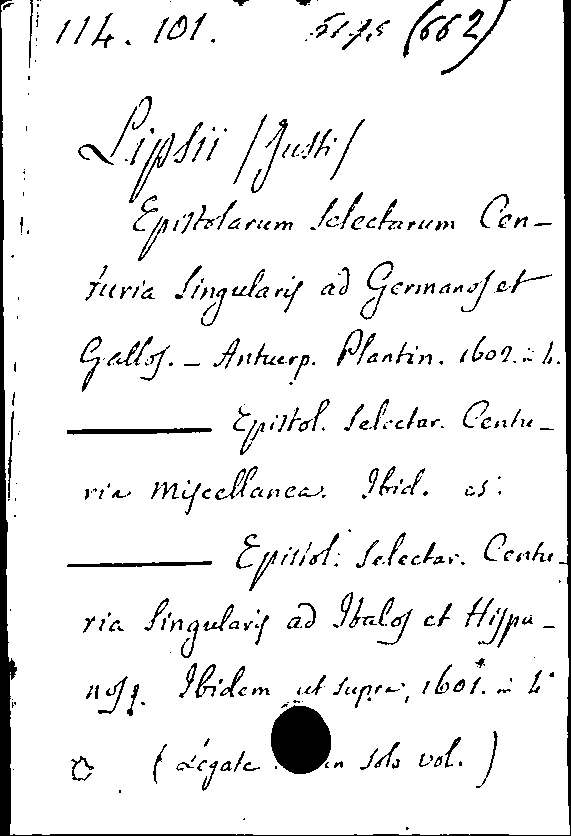 114. 101. (662)
Lipsii /Justi/
Epistolarum selectarum Cen-
turia singularis ad Germanos et
Gallos. - Antuerp. Plantin. 1602. in 4.
Epistol. selectar. Centu-
ria Miscellanea. Ibid.
Epistol: selectar. Centu-
ria singularis ad Italos et Hispa-
nosq. Ibidem ut supra, 1601. in 4°
( Legate in solo vol. )